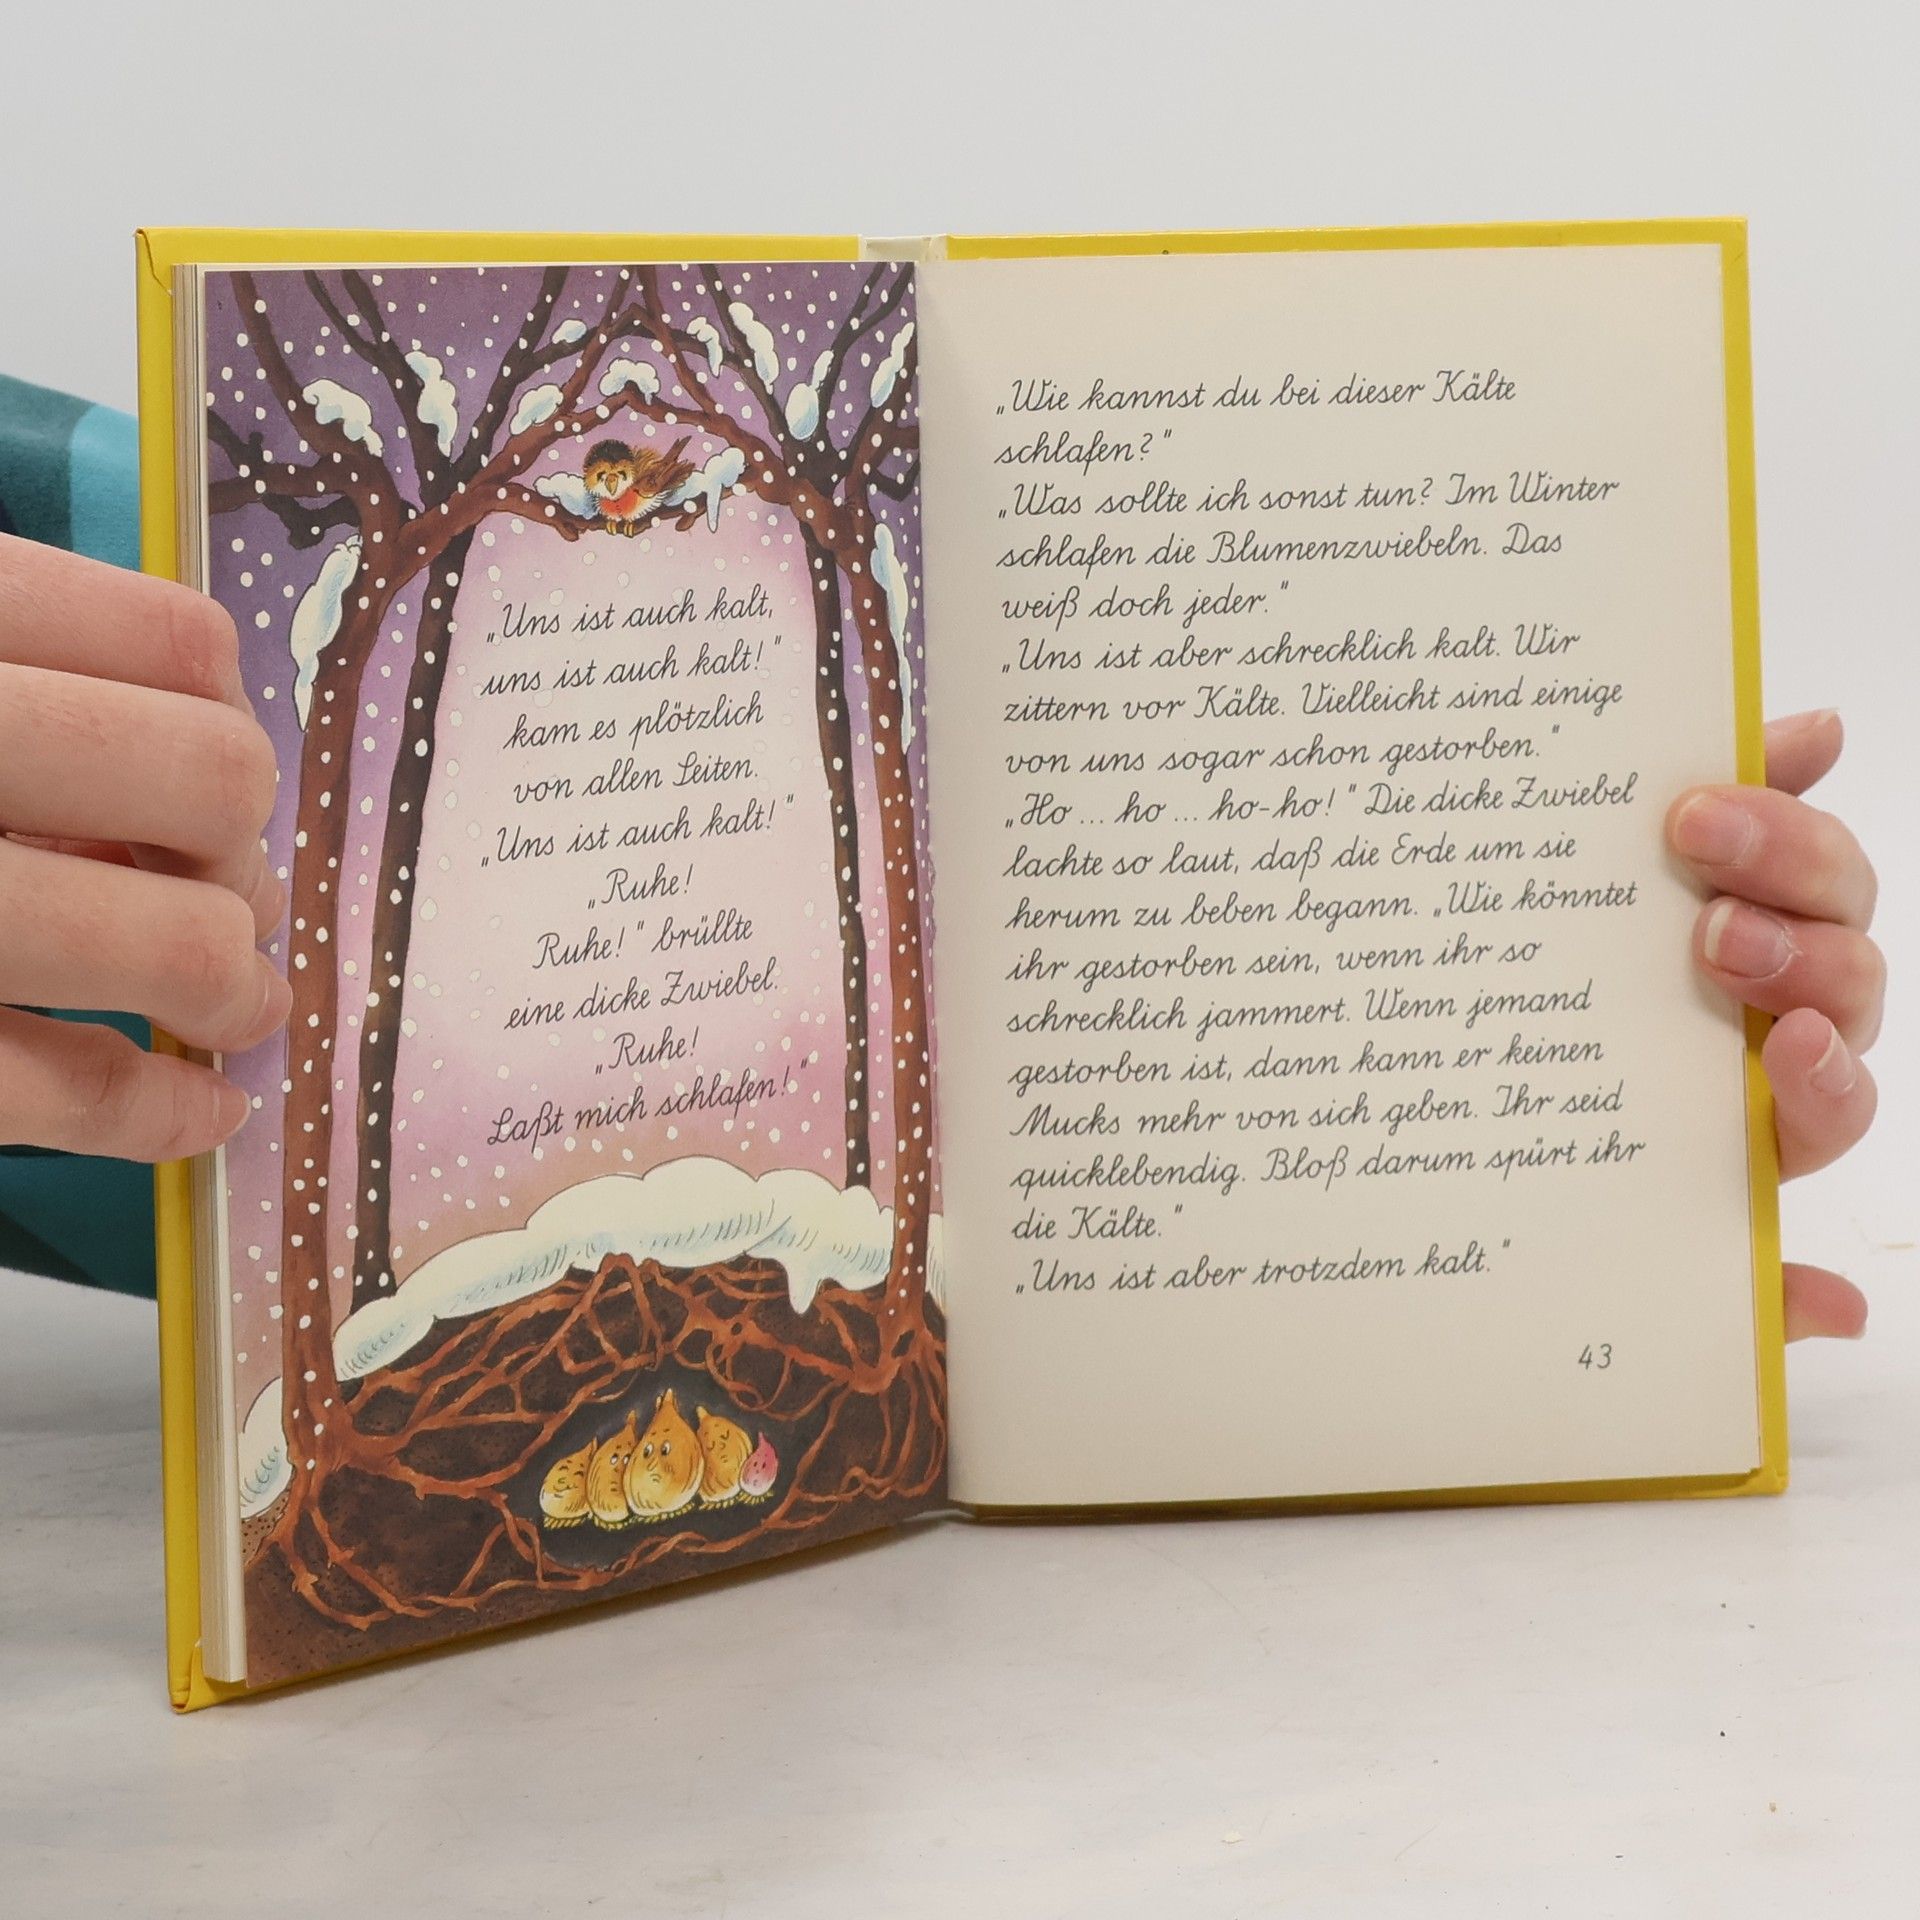 „Uns ist auch kalt,
uns ist auch kalt!"
kam es plötzlich
von allen Seiten.
„Uns ist auch kalt!"
„Ruhe!
Ruhe!" brüllte
eine dicke Zwiebel.
„Ruhe!
Laßt mich schlafen!"
„Wie kannst du bei dieser Kälte
schlafen?"
„Was sollte ich sonst tun? Im Winter
schlafen die Blumenzwiebeln. Das
weiß doch jeder."
„Uns ist aber schrecklich kalt. Wir
zittern vor Kälte. Vielleicht sind einige
von uns sogar schon gestorben."
„Ho ... ho ... ho-ho!" Die dicke Zwiebel
lachte so laut, daß die Erde um sie
herum zu beben begann. „Wie könntet
ihr gestorben sein, wenn ihr so
schrecklich jammert. Wenn jemand
gestorben ist, dann kann er keinen
Mucks mehr von sich geben. Ihr seid
quicklebendig. Bloß darum spürt ihr
die Kälte."
„Uns ist aber trotzdem kalt."
43